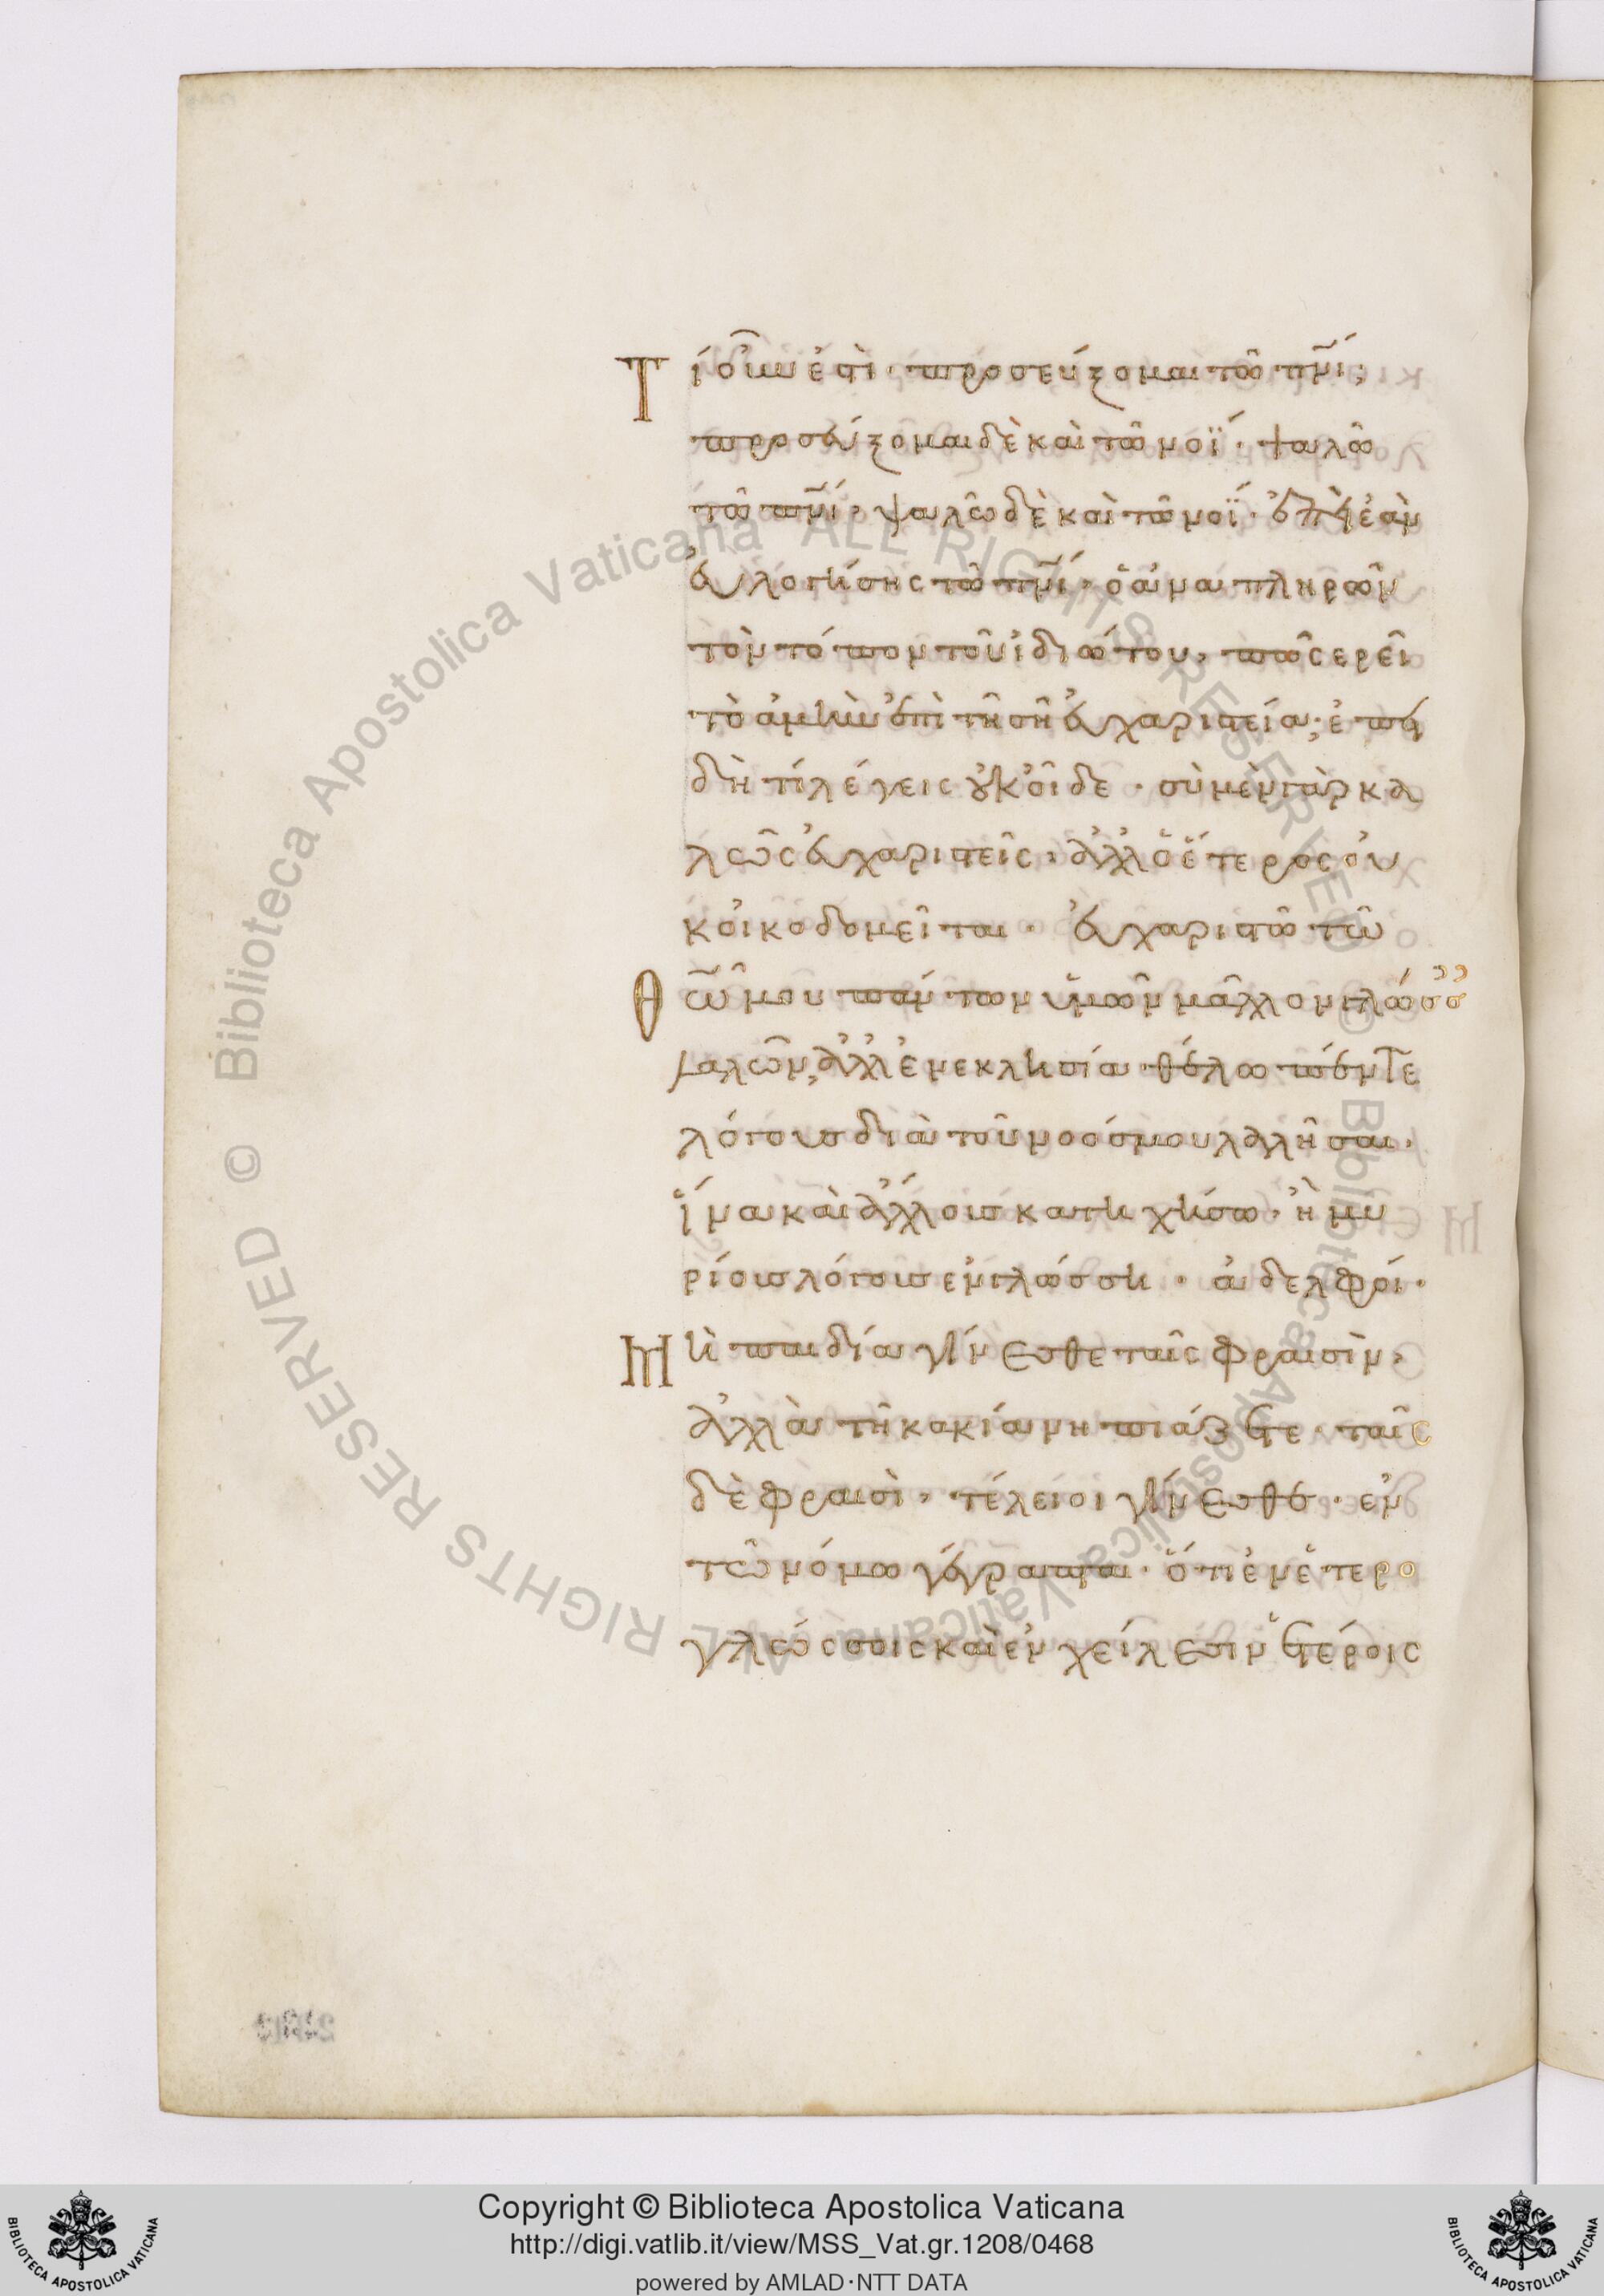 Τί οὖν ἐστὶ· προσεύξομαι τῶ πν̅ί;
προσεύξομαι δὲ καὶ τῶ νοΐ· ψαλῶ
τῶ πν̅ί· ψαλῶ δὲ καὶ τῶ νοΐ· ἐπεὶ ἐὰν
εὐλογήσης τῶ πν̅ί· ὁ ἀναπληρῶν
τὸν τόπον τοῦ ἰδιώτου, πῶς ερεῖ
τὸ ἀμὴν ἐπὶ τῆ σῆ εὐχαριστεία; ἐπει
δὴ τί λέγεις οὐκ οἶδε· σὺ μὲν γὰρ κα
λῶς εὐχαριστεῖς· ἀλλ ὁ ἕτερος οὐ
κ οἰκοδομεῖται· εὐχαριστῶ τῶ
Θω̅ μου πάντων ὑμῶν μᾶλλον γλώσσ
λαλῶν, ἀλλ ἐν εκκλησία θέλω πέντε
λόγους διὰ τοῦ νοός μου λαλῆσαι·
ἵνα καὶ ἄλλους κατηχήσω· ἢ μυ
ρίους λόγους εν γλώσση· ἀδελφοί·
Μὴ παιδία γίνεσθε ταῖς φρεσὶν,
ἀλλὰ τῆ κακία νηπιάζετε· ταῖς
δὲ φρεσὶ, τέλειοι γίνεσθε· εν
τῶ νόμω γέγραπται· ὅτι ἐν ἑτερο
γλώσσοις καὶ εν χείλεσιν ἑτέροις
Copyright © Biblioteca Apostolica Vaticana
http://digi.vatlib.it/view/MSS_Vat.gr.1208/0468
powered by AMLAD·NTT DATA
BIBLIOTECA APOSTOLICA VATICANA
BIBLIOTECA APOSTOLICA VATICANA
© Biblioteca Apostolica Vaticana ALL RIGHTS RESERVED
© Biblioteca Apostolica Vaticana ALL RIGHTS RESERVED